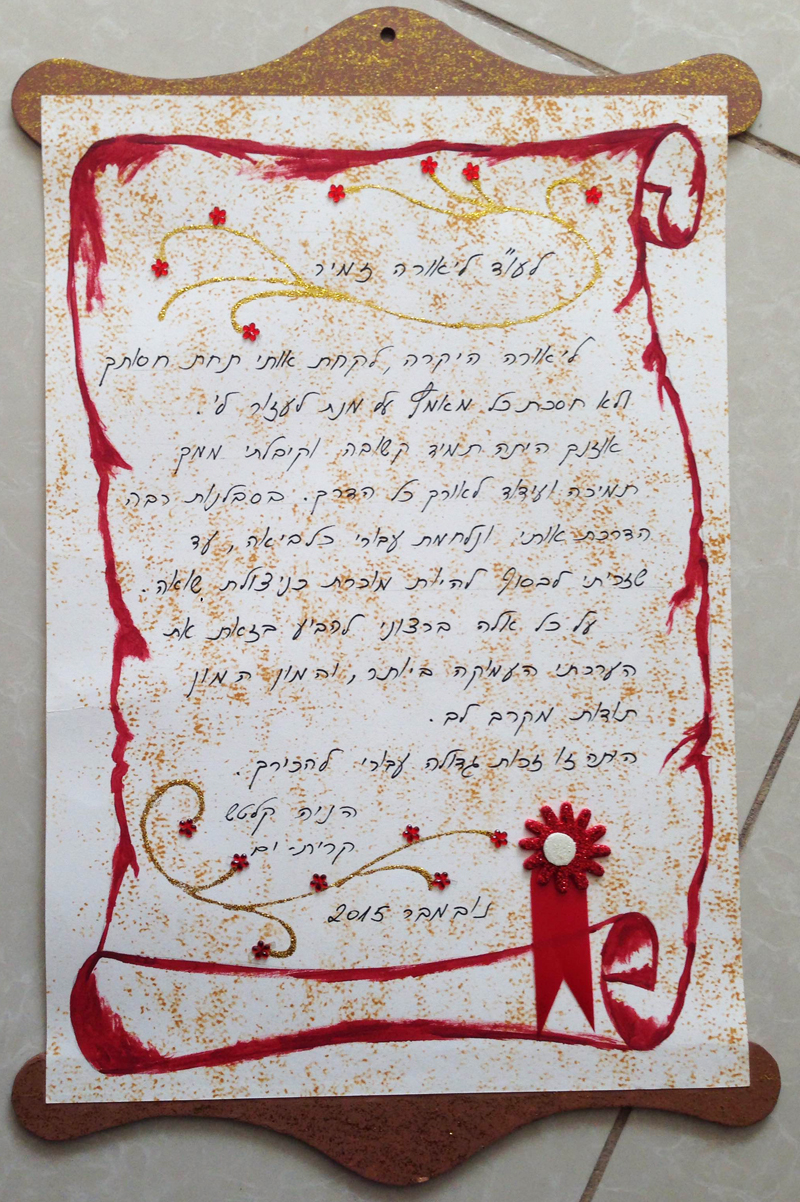 לעו"ד ליאורה זמיר
ליאורה היקרה, לקחת אותי תחת חסותך
ולא חסכת כל מאמץ על מנת לעזור לי.
אוזנך היתה תמיד קשובה וקיבלתי ממך
תמיכה ועידוד לאורך כל הדרך. בסבלנות רבה
הדרכת אותי ונלחמת עבורי כלביאה, עד
שזכיתי לבסוף להיות מוכרת כניצולת שואה.
על כל אלה ברצוני להביע בזאת את
הערכתי העמוקה ביותר, והמון המון
תודות מקרב לב.
היתה זו זכות גדולה עבורי להכירך.
הניה קלטש
קרית-ים
נובמבר 2015